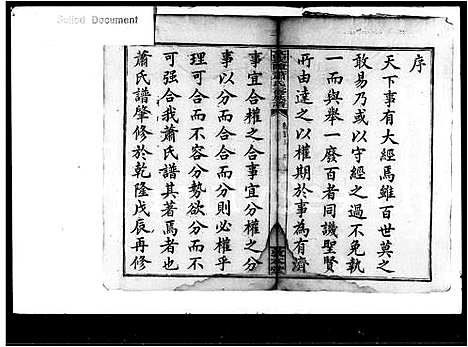 Soiled Document
序
天下事有大經焉雖百世莫之
敢易乃或以守經之過不免執
一而與舉一廢百者同譏聖賢
所由達之以權期於事為有濟
事宜合權之合事宜分權之分
事以分而合合而分則必權乎
理可合而不容分勢欲分而不
可強合我蕭氏譜其著焉者也
蕭氏譜肇修於乾隆戊辰再修